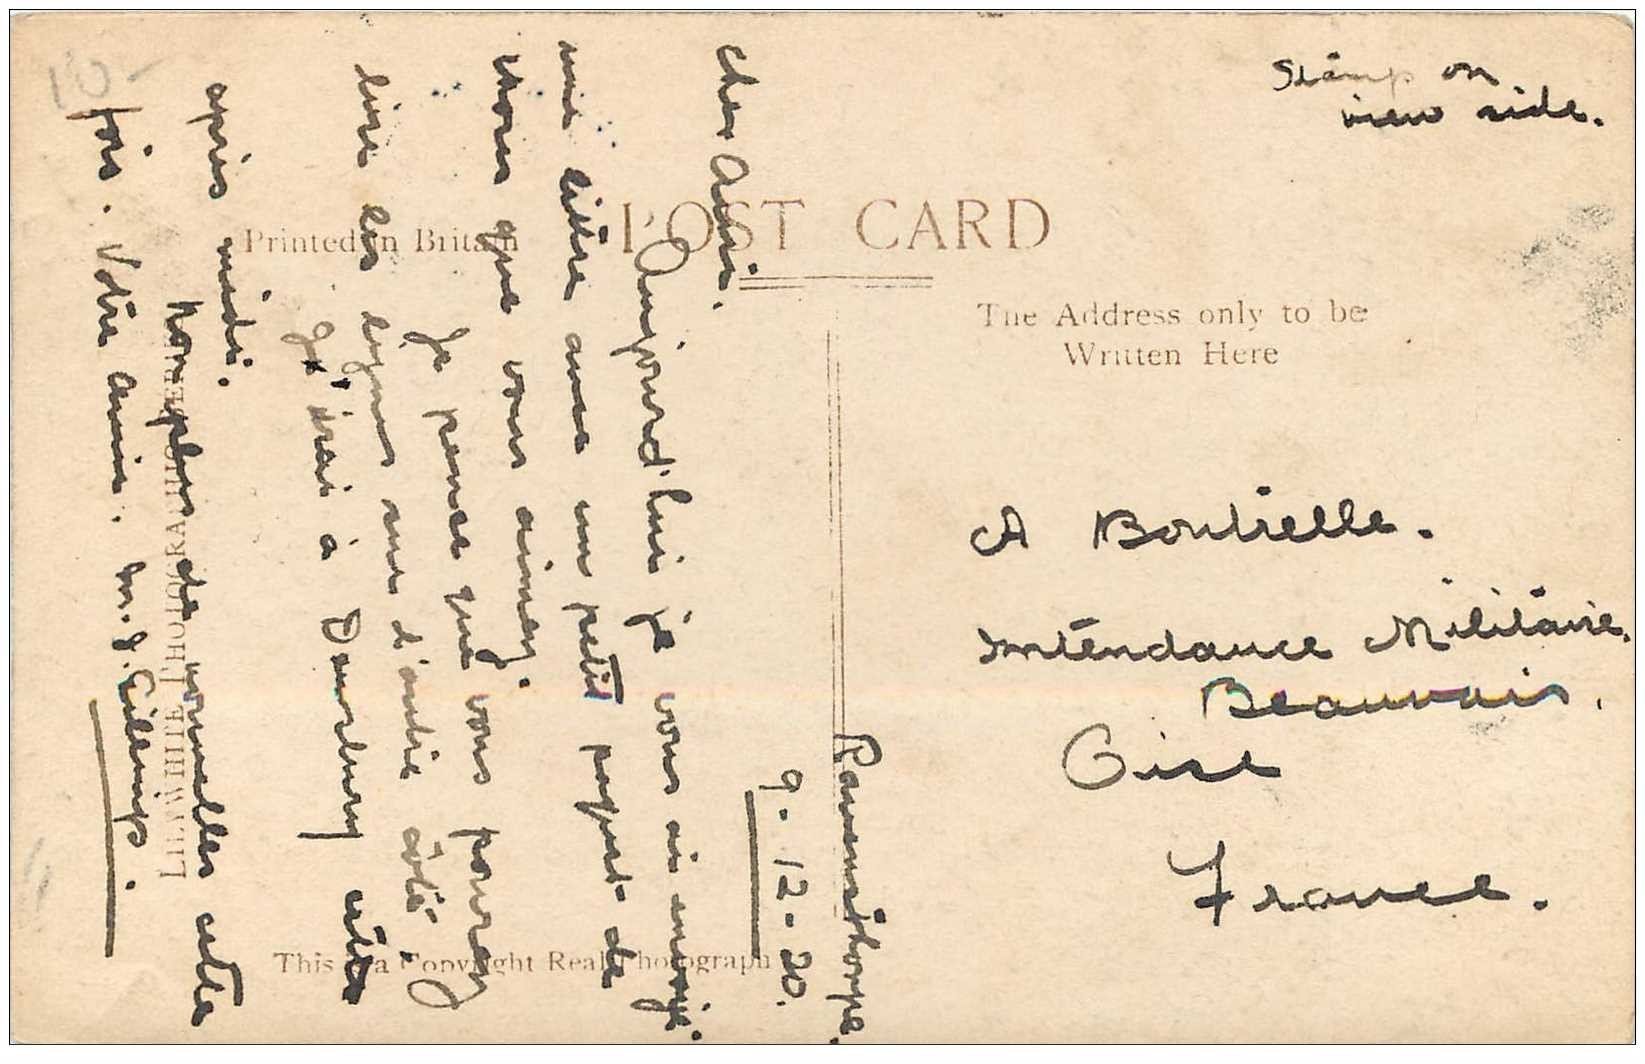 10-
Stamp on
view side.
POST CARD
Printed in Britain
The Address only to be
Written Here
A Boutielle.
Intendance Militaire.
Beauvais.
Oise
France.
Ravensthorpe.
9-12-20.
Cher Ami.
Aujourd'hui je vous ai envoyé
une lettre avec un petit paquet de
choses que vous aimez.
Je pense que vous pouvez
lire les lignes sur l'autre côté.
J'irai à Dewsbury cette
après midi.
Non plus de nouvelles cette
fois. Votre amie. M. J.
LILYWHITE PHOTOGRAPHIC SERIES
This is a Copyright Real Photograph